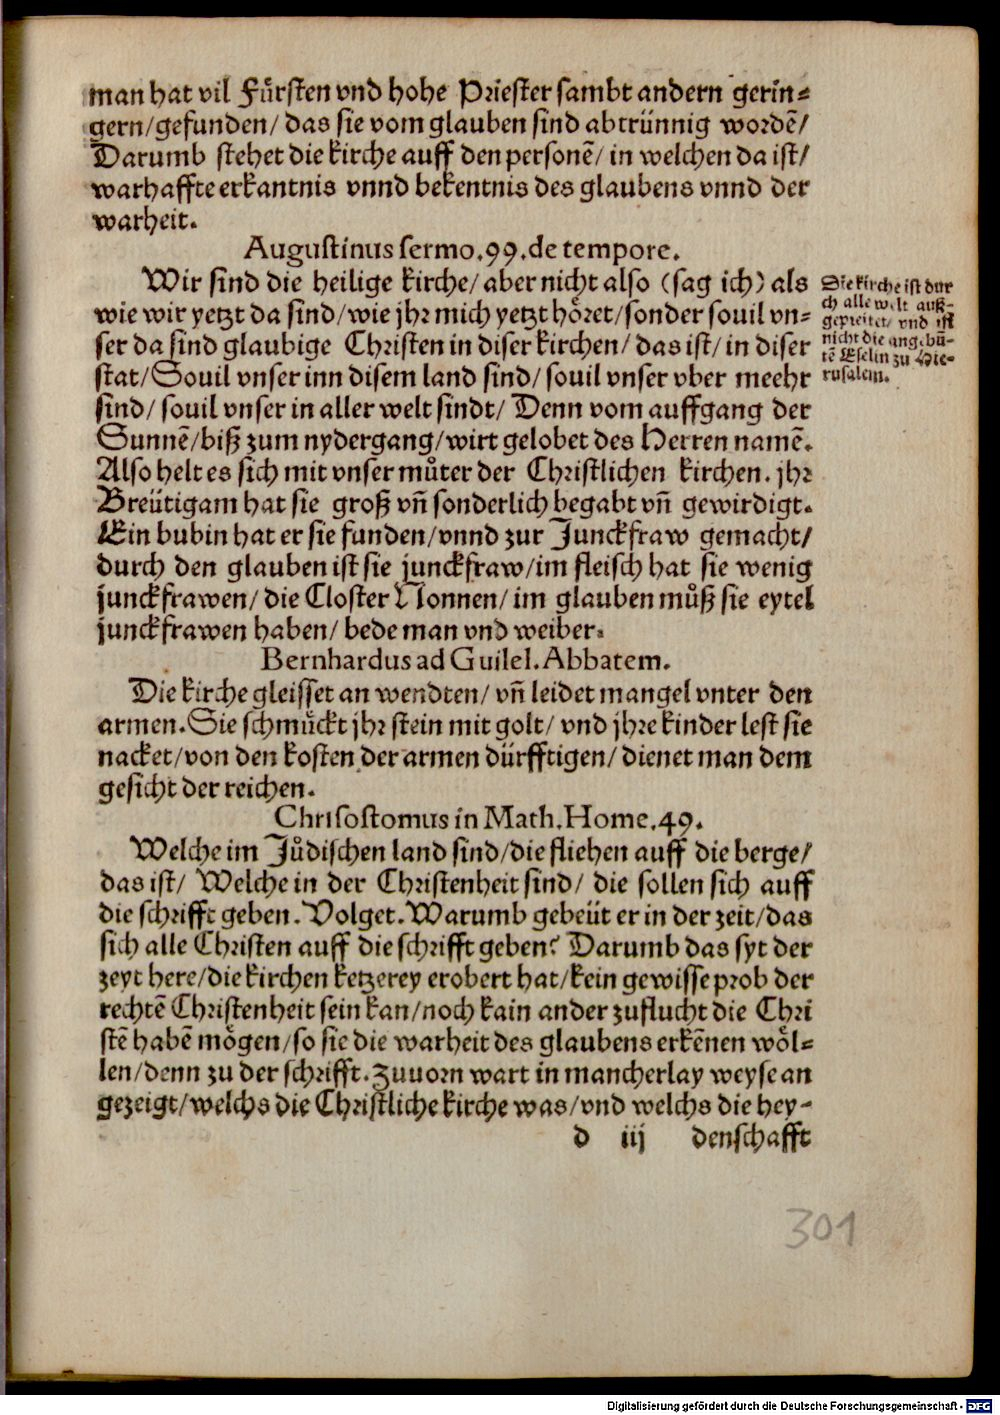 man hat vil Fürsten vnd hohe Priester sambt andern gerin-
gern/gefunden/ das sie vom glauben sind abtrünnig wordē/
Darumb stehet die kirche auff den personē/ in welchen da ist/
warhaffte erkantnis vnnd bekentnis des glaubens vnnd der
warheit.
Augustinus sermo.99.de tempore.
Wir sind die heilige kirche/ aber nicht also (sag ich) als
wie wir yetzt da sind/wie jhr mich yetzt höret/sonder souil vn-
ser da sind glaubige Christen in diser kirchen/ das ist/ in diser
stat/Souil vnser inn disem land sind/ souil vnser vber meehr
sind/ souil vnser in aller welt sindt/ Denn vom auffgang der
Sunnē/biß zum nydergang/wirt gelobet des Herren namē.
Also helt es sich mit vnser můter der Christlichen kirchen. jhr
Breütigam hat sie groß vn̄ sonderlich begabt vn̄ gewirdigt.
Ein bubin hat er sie funden/vnnd zur Junckfraw gemacht/
durch den glauben ist sie junckfraw/im fleisch hat sie wenig
junckfrawen/ die Closter Nonnen/ im glauben můß sie eytel
junckfrawen haben/ bede man vnd weiber.
Die kirche ist dur
ch alle welt auß-
gepreitet/ vnd ist
nicht die angebū-
tē Eselin zu Hie-
rusalem.
Bernhardus ad Guilel.Abbatem.
Die kirche gleisset an wendten/ vn̄ leidet mangel vnter den
armen.Sie schmückt jhr stein mit golt/ vnd jhre kinder lest sie
nacket/von den kosten der armen dürfftigen/ dienet man dem
gesicht der reichen.
Chrisostomus in Math.Home.49.
Welche im Jůdischen land sind/die fliehen auff die berge/
das ist/ Welche in der Christenheit sind/ die sollen sich auff
die schrifft geben. Volget. Warumb gebeüt er in der zeit/das
sich alle Christen auff die schrifft geben? Darumb das syt der
zeyt here/die kirchen ketzerey erobert hat/kein gewisse prob der
rechtē Christenheit sein kan/noch kain ander zuflucht die Chri
stē habē mögen/so sie die warheit des glaubens erkēnen wöl-
len/denn zu der schrifft. Zuuorn wart in mancherlay weyse an
gezeigt/welchs die Christliche kirche was/vnd welchs die hey-
d iij denschafft
301
Digitalisierung gefördert durch die Deutsche Forschungsgemeinschaft - DFG